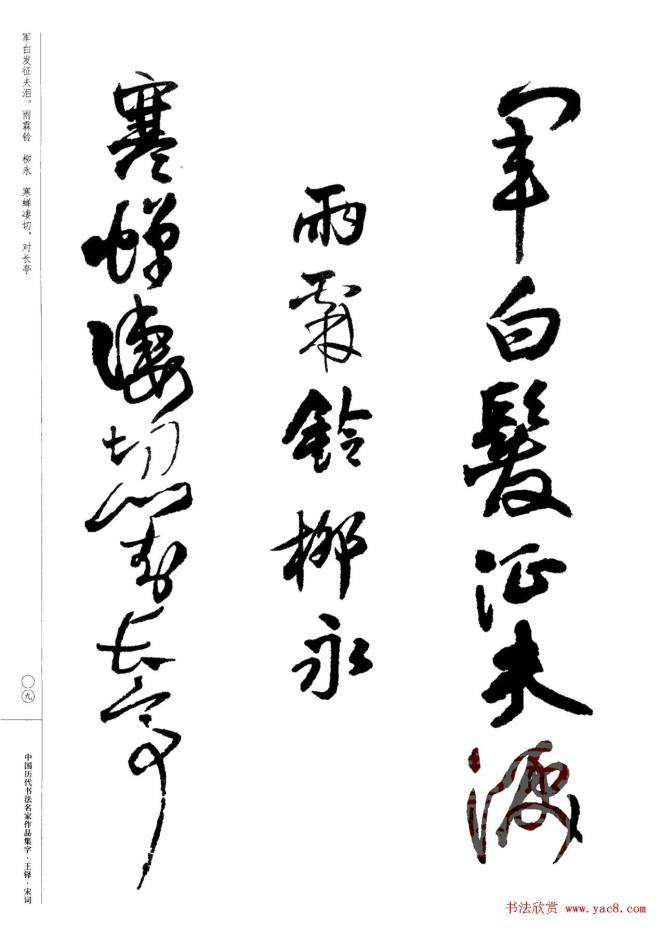 軍白髮征夫淚
雨霖鈴柳永
寒蟬淒切對長亭
军白发征夫泪。雨霖铃 柳永 寒蝉凄切，对长亭
〇九
中国历代书法名家作品集字·王铎·宋词
书法欣赏 www.yac8.com